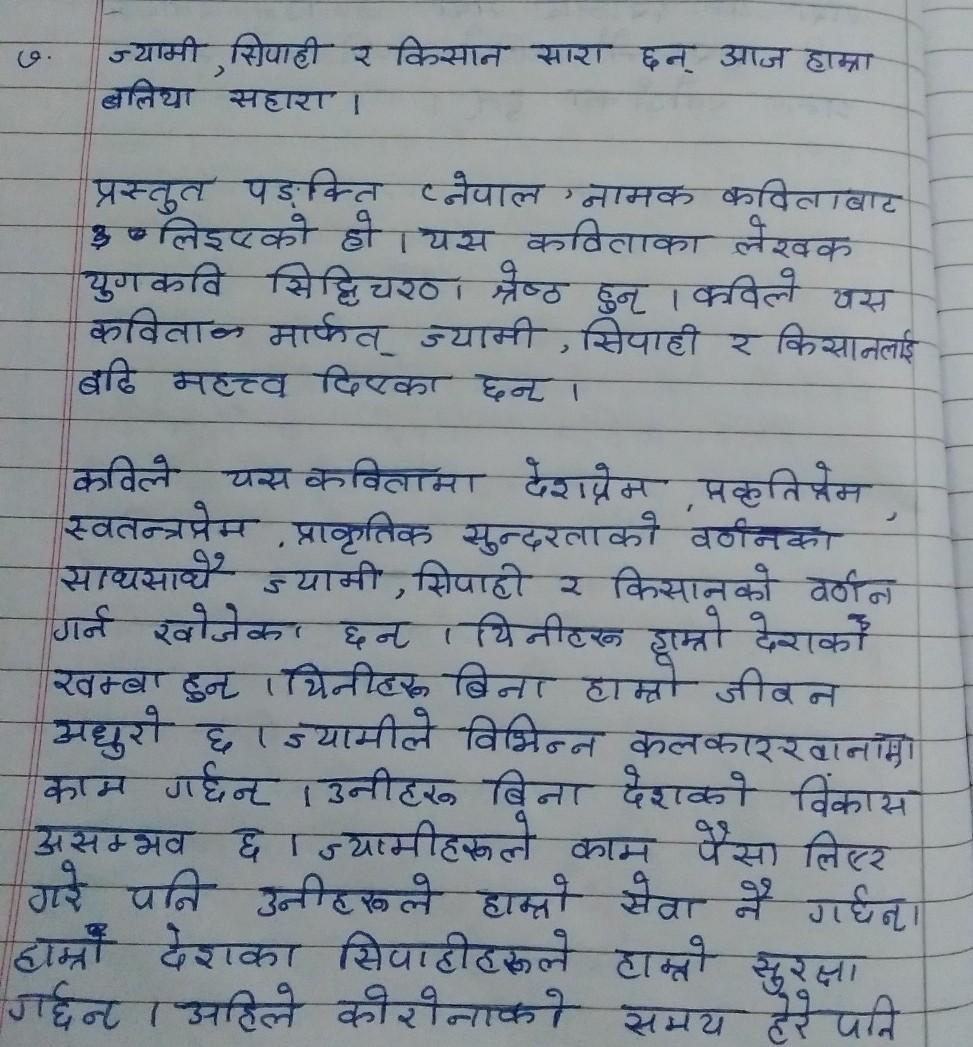 ७. ज्यामी, सिपाही र किसान सारा छन् आज हाम्रा
बलिया सहारा ।
प्रस्तुत पङ्क्ति 'नेपाल' नामक कविताबाट
लिइएको हो । यस कविताका लेखक
युगकवि सिद्दिचरण श्रेष्ठ हुन् । कविले यस
कविताक मार्फत् ज्यामी, सिपाही र किसानलाई
बढि महत्त्व दिएका छन् ।
कविले यस कवितामा देशप्रेम, प्रकृतिप्रेम,
स्वतन्त्रप्रेम, प्राकृतिक सुन्दरताको वर्णनका
साथसाथै ज्यामी, सिपाही र किसानको वर्णन
गर्न खोजेका छन् । यिनीहरू हाम्रो देशको
खम्बा हुन् । यिनीहरू बिना हाम्रो जीवन
अधुरो छ । ज्यामीले विभिन्न कलकारखानामा
काम गर्छन् । उनीहरू बिना देशको विकास
असम्भव छ । ज्यामीहरूले काम पैसा लिएर
गरे पनि उनीहरूले हाम्रो सेवा नै गर्छन् ।
हाम्रो देशका सिपाहीहरूले हाम्रो सुरक्षा
गर्छन् । अहिले कोरोनाको समय हेरे पनि